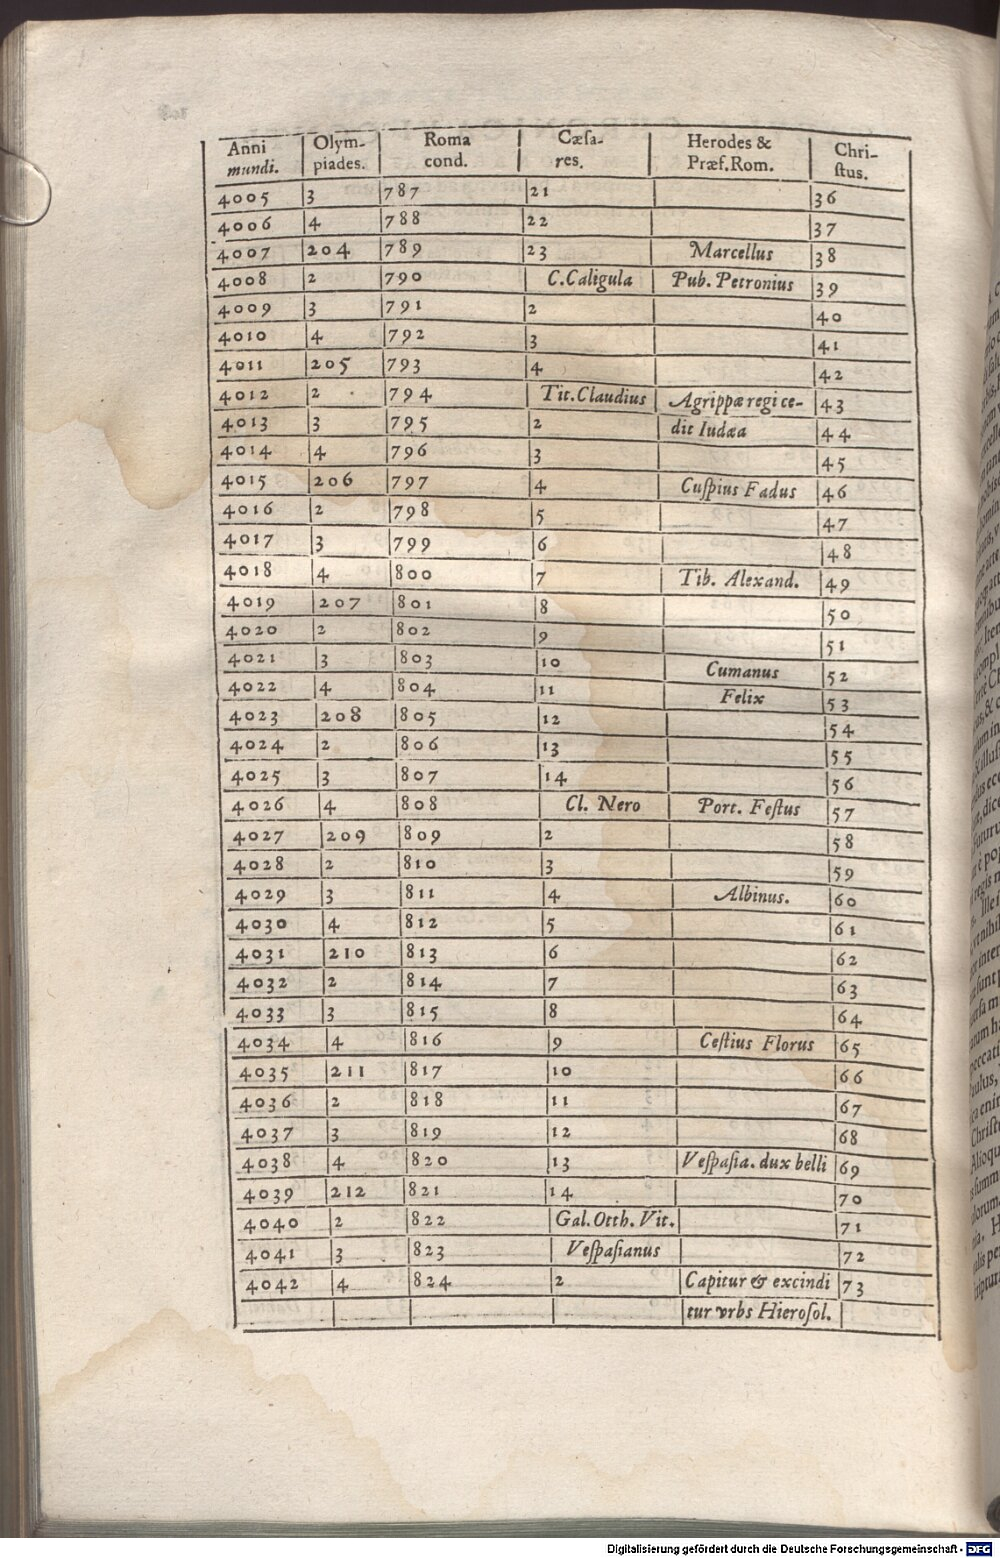 Anni mundi. Olympiades. Roma cond. Cæſares. Herodes & Præf. Rom. Chriſtus.
4005 3 787 21 36
4006 4 788 22 37
4007 204 789 23 Marcellus 38
4008 2 790 C. Caligula Pub. Petronius 39
4009 3 791 2 40
4010 4 792 3 41
4011 205 793 4 42
4012 2 794 Tit. Claudius Agrippæ regi ce- 43
4013 3 795 2 dit Iudæa 44
4014 4 796 3 45
4015 206 797 4 Cuſpius Fadus 46
4016 2 798 5 47
4017 3 799 6 48
4018 4 800 7 Tib. Alexand. 49
4019 207 801 8 50
4020 2 802 9 51
4021 3 803 10 Cumanus 52
4022 4 804 11 Felix 53
4023 208 805 12 54
4024 2 806 13 55
4025 3 807 14 56
4026 4 808 Cl. Nero Port. Feſtus 57
4027 209 809 2 58
4028 2 810 3 59
4029 3 811 4 Albinus. 60
4030 4 812 5 61
4031 210 813 6 62
4032 2 814 7 63
4033 3 815 8 64
4034 4 816 9 Ceſtius Florus 65
4035 211 817 10 66
4036 2 818 11 67
4037 3 819 12 68
4038 4 820 13 Veſpaſia. dux belli 69
4039 212 821 14 70
4040 2 822 Gal. Otth. Vit. 71
4041 3 823 Veſpaſianus 72
4042 4 824 2 Capitur & excindi 73
tur vrbs Hieroſol.
Digitalisierung gefördert durch die Deutsche Forschungsgemeinschaft - DFG